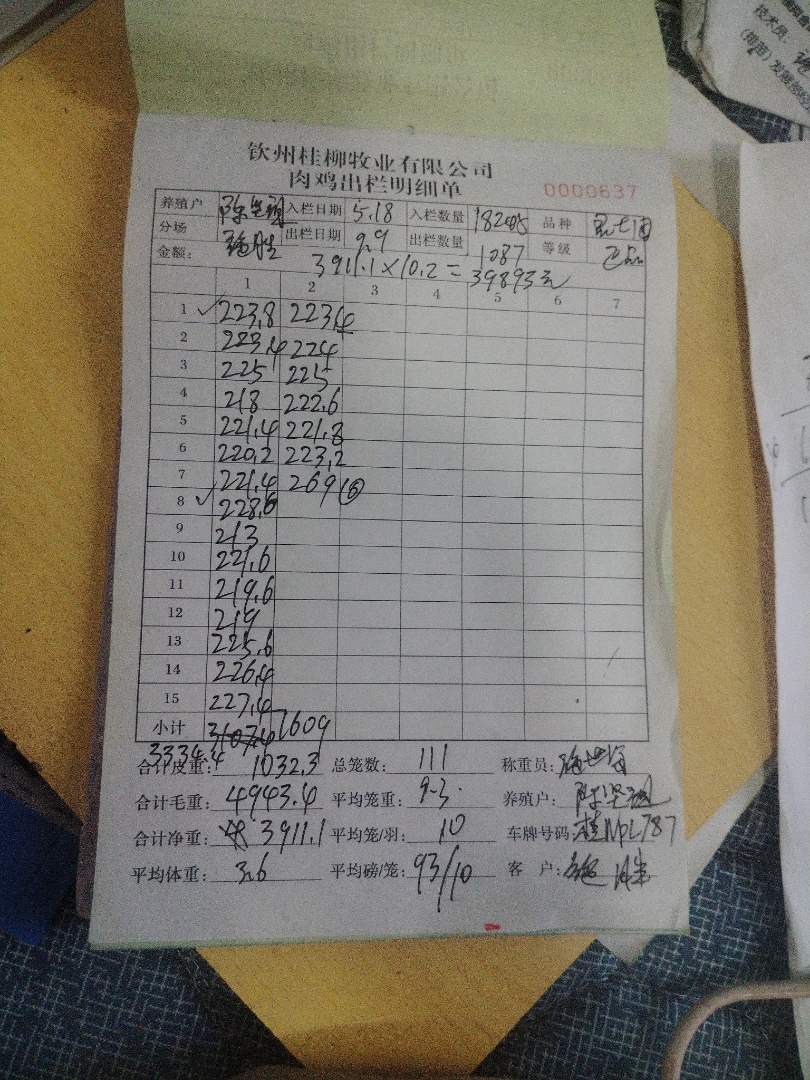 技术员:
钦州桂柳牧业有限公司
肉鸡出栏明细单 0000637
养殖户 陈 入栏日期 5.18 入栏数量 品种
分场 出栏日期 9.9 出栏数量 1087 等级
金额: 3911.1×10.2=39893元
1 2 3 4 5 6 7
1 ✓ 223.8 223.4
2 223.4 224
3 225 225
4 218 222.6
5 221.4 221.8
6 220.2 223.2
7 221.4 269 ⑥
8 ✓ 228.6
9 213
10 221.6
11 219.6
12 219
13 225.6
14 226.4
15 227.4
小计 3107.4 1609
3334.4
合计皮重: 1032.3 总笼数: 111 称重员:
合计毛重: 4943.4 平均笼重: 9.3 养殖户: 陈
合计净重: 3911.1 平均笼/羽: 10 车牌号码: 桂
平均体重: 3.6 平均磅/笼: 93/10 客 户: